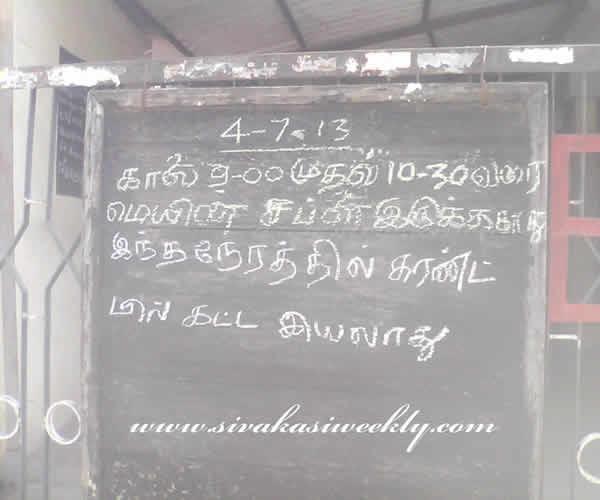 4-7-13
காலை 9-00 முதல் 10-30 வரை
மெயின் சப்ளை இருக்காது
இந்த நேரத்தில் கரண்ட்
பில் கட்ட இயலாது
www.sivakasiweekly.com